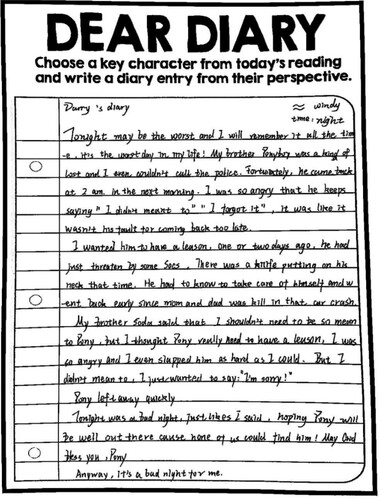 DEAR DIARY
Choose a key character from today's reading
and write a diary entry from their perspective.
Darry's diary ≈ windy
time: night
Tonight may be the worst and I will remember it all the tim
-e, it's the worst day in my life! My brother Ponyboy was a kind of
lost and I even couldn't call the police. Fortunately, he came back
at 2 am. in the next morning. I was so angry that he keeps
saying "I didn't meant to" "I forgot it", it was like it
wasn't his fault for coming back too late.
I wanted him to have a lesson, one or two days ago, he had
just threaten by some Socs. There was a knife putting on his
neck that time. He had to know to take care of himself and w
ent back early since mom and dad was kill in that car crash.
My brother Soda said that I shouldn't need to be so mean
to Pony, but I thought Pony really need to have a lesson, I was
so angry and I even slapped him as hard as I could. But I
didn't mean to, I just wanted to say: "I'm sorry!"
Pony left away quickly
Tonight was a bad night, just likes I said, hoping Pony will
be well out there cause none of us could find him! May God
bless you, Pony
Anyway, it's a bad night for me.